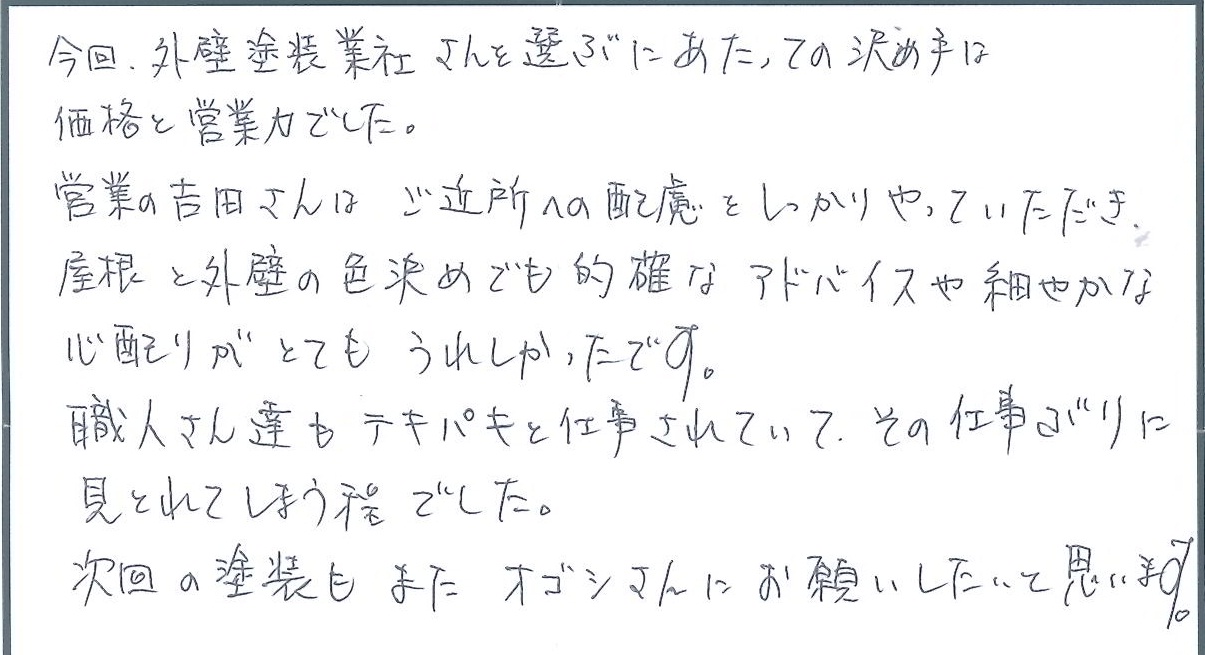 今回、外壁塗装業社さんを選ぶにあたっての決め手は
価格と営業力でした。
営業の吉田さんは ご近所への配慮をしっかりやっていただき、
屋根と外壁の色決めでも的確なアドバイスや細やかな
心配りがとても うれしかったです。
職人さん達もテキパキと仕事されていて、その仕事ぶりに
見とれてしまう程でした。
次回の塗装もまた オゴシさんにお願いしたいと思います。